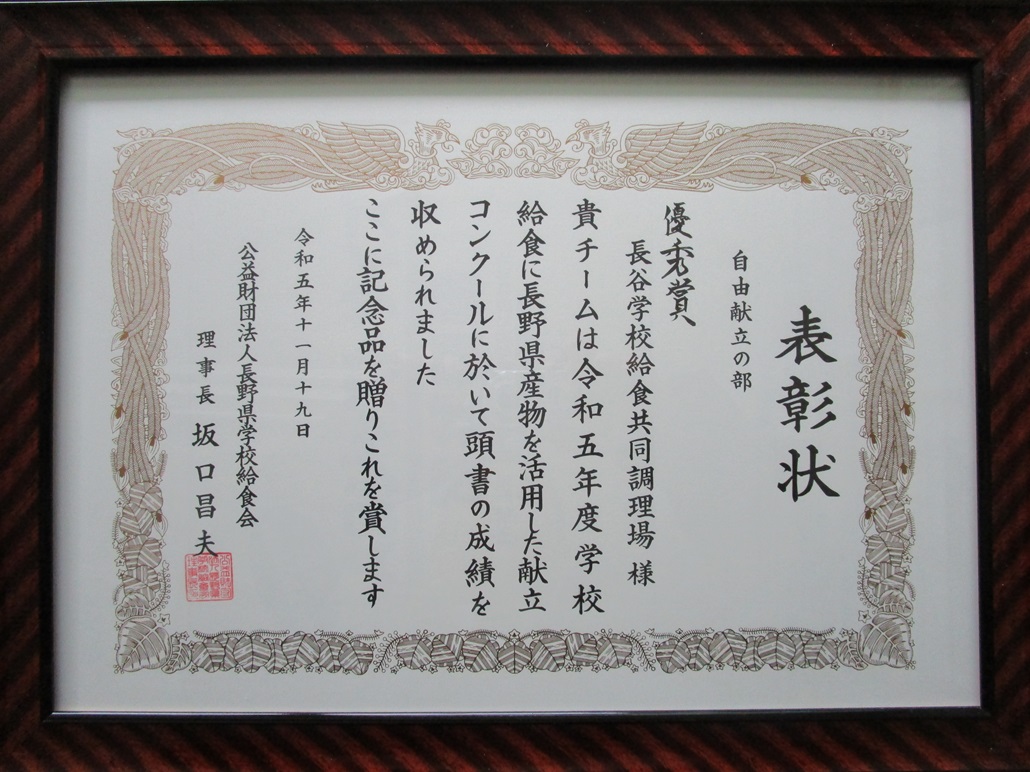 表彰状
自由献立の部
優秀賞
長谷学校給食共同調理場様
貴チームは令和五年度学校
給食に長野県産物を活用した献立
コンクールに於いて頭書の成績を
収められました
ここに記念品を贈りこれを賞します
令和五年十一月十九日
公益財団法人長野県学校給食会
理事長 坂口昌夫